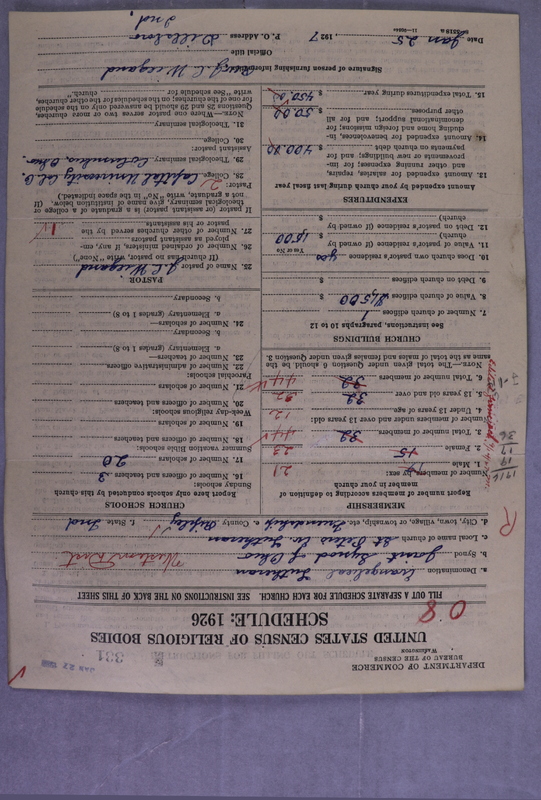 DEPARTMENT OF COMMERCE
BUREAU OF THE CENSUS
WASHINGTON
331
JAN 27
UNITED STATES CENSUS OF RELIGIOUS BODIES
SCHEDULE: 1926
08
FILL OUT A SEPARATE SCHEDULE FOR EACH CHURCH. SEE INSTRUCTIONS ON THE BACK OF THIS SHEET
a. Denomination Evangelical Lutheran
b. Synod Joint Synod of Ohio Western Dist
c. Local name of church St. Peters Ev. Lutheran
d. City, town, village, or township, etc. Friendship e. County Ripley f. State Ind
R
MEMBERSHIP
Report number of members according to definition of member in your church
Number of members by sex:
1. Male 21
2. Female 15 23
2. Total number of members 39 44
Number of members under and over 13 years old:
4. Under 13 years of age 12
5. 13 years old and over 39 32
6. Total number of members 39 44
NOTE.—The total given under Question 6 should be the same as the total of males and females given under Question 3.
1916
19
17
36
CHURCH BUILDINGS
See instructions, paragraphs 10 to 12
7. Number of church edifices 1
8. Value of church edifices $ 1,500
9. Debt on church edifices $
10. Does church own pastor's residence yes
Yes or No
11. Value of pastor's residence (if owned by church) $ 1500
12. Debt on pastor's residence (if owned by church) $
EXPENDITURES
Amount expended by your church during last fiscal year
13. Amount expended for salaries, repairs, and other running expenses; for improvements or new buildings; and for payments on church debt $ 400.00
14. Amount expended for benevolences, including home and foreign missions; for denominational support; and for all other purposes 50.00
15. Total expenditures during year $ 450.00
CHURCH SCHOOLS
Report here only schools conducted by this church
Sunday school:
16. Number of officers and teachers 3
17. Number of scholars 20
Summer vacation Bible schools:
18. Number of officers and teachers
19. Number of scholars
Week-day religious schools:
20. Number of officers and teachers
21. Number of scholars
Parochial schools:
22. Number of administrative officers
23. Number of teachers—
a. Elementary (grades 1 to 8)
b. Secondary
24. Number of scholars—
a. Elementary (grades 1 to 8)
b. Secondary
PASTOR
25. Name of pastor J. C. Wiegand
(If church has no pastor, write "None")
26. Number of ordained ministers, if any, employed as assistant pastors
27. Number of other churches served by the pastor or his assistants 1
If pastor (or assistant pastor) is a graduate of a college or theological seminary, give name of institution below. (If not a graduate, write "No" in the space indicated.)
Pastor:
28. College Capital University Col. O.
29. Theological seminary Columbus, Ohio
Assistant pastor:
30. College
31. Theological seminary
NOTE.—Where one pastor serves two or more churches, Questions 28 and 29 should be answered only on the schedule for one of the churches; on the schedules for the other churches, write "See schedule for church."
Signature of person furnishing information Rev. J. C. Wiegand
Official title
Date Jan 25, 1927 P. O. Address Dillsboro
Ind,